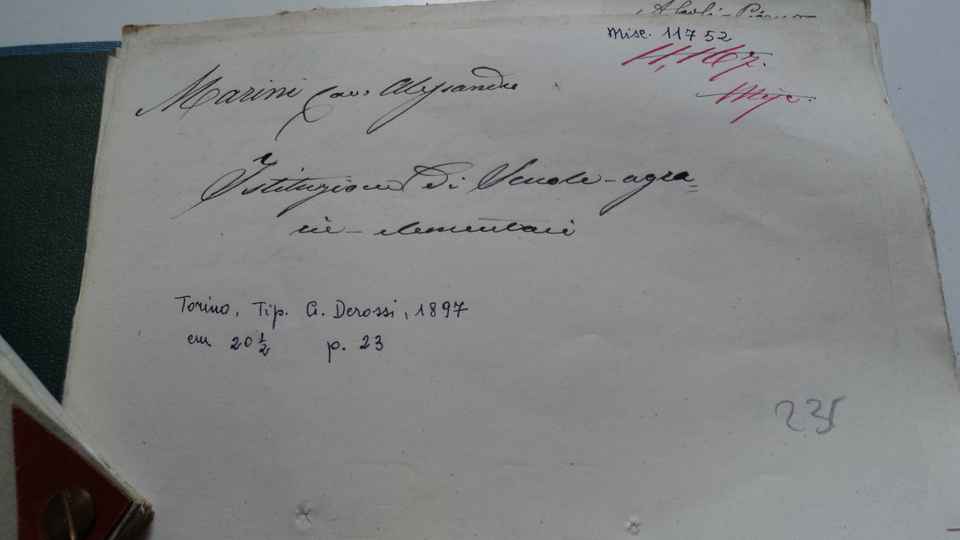 Misc. 11752
Marini Cav. Alessandro
Istituzione di Scuole-agra=
rie-elementari
Torino, Tip. G. Derossi, 1897
cm 20 1/2 p. 23
235